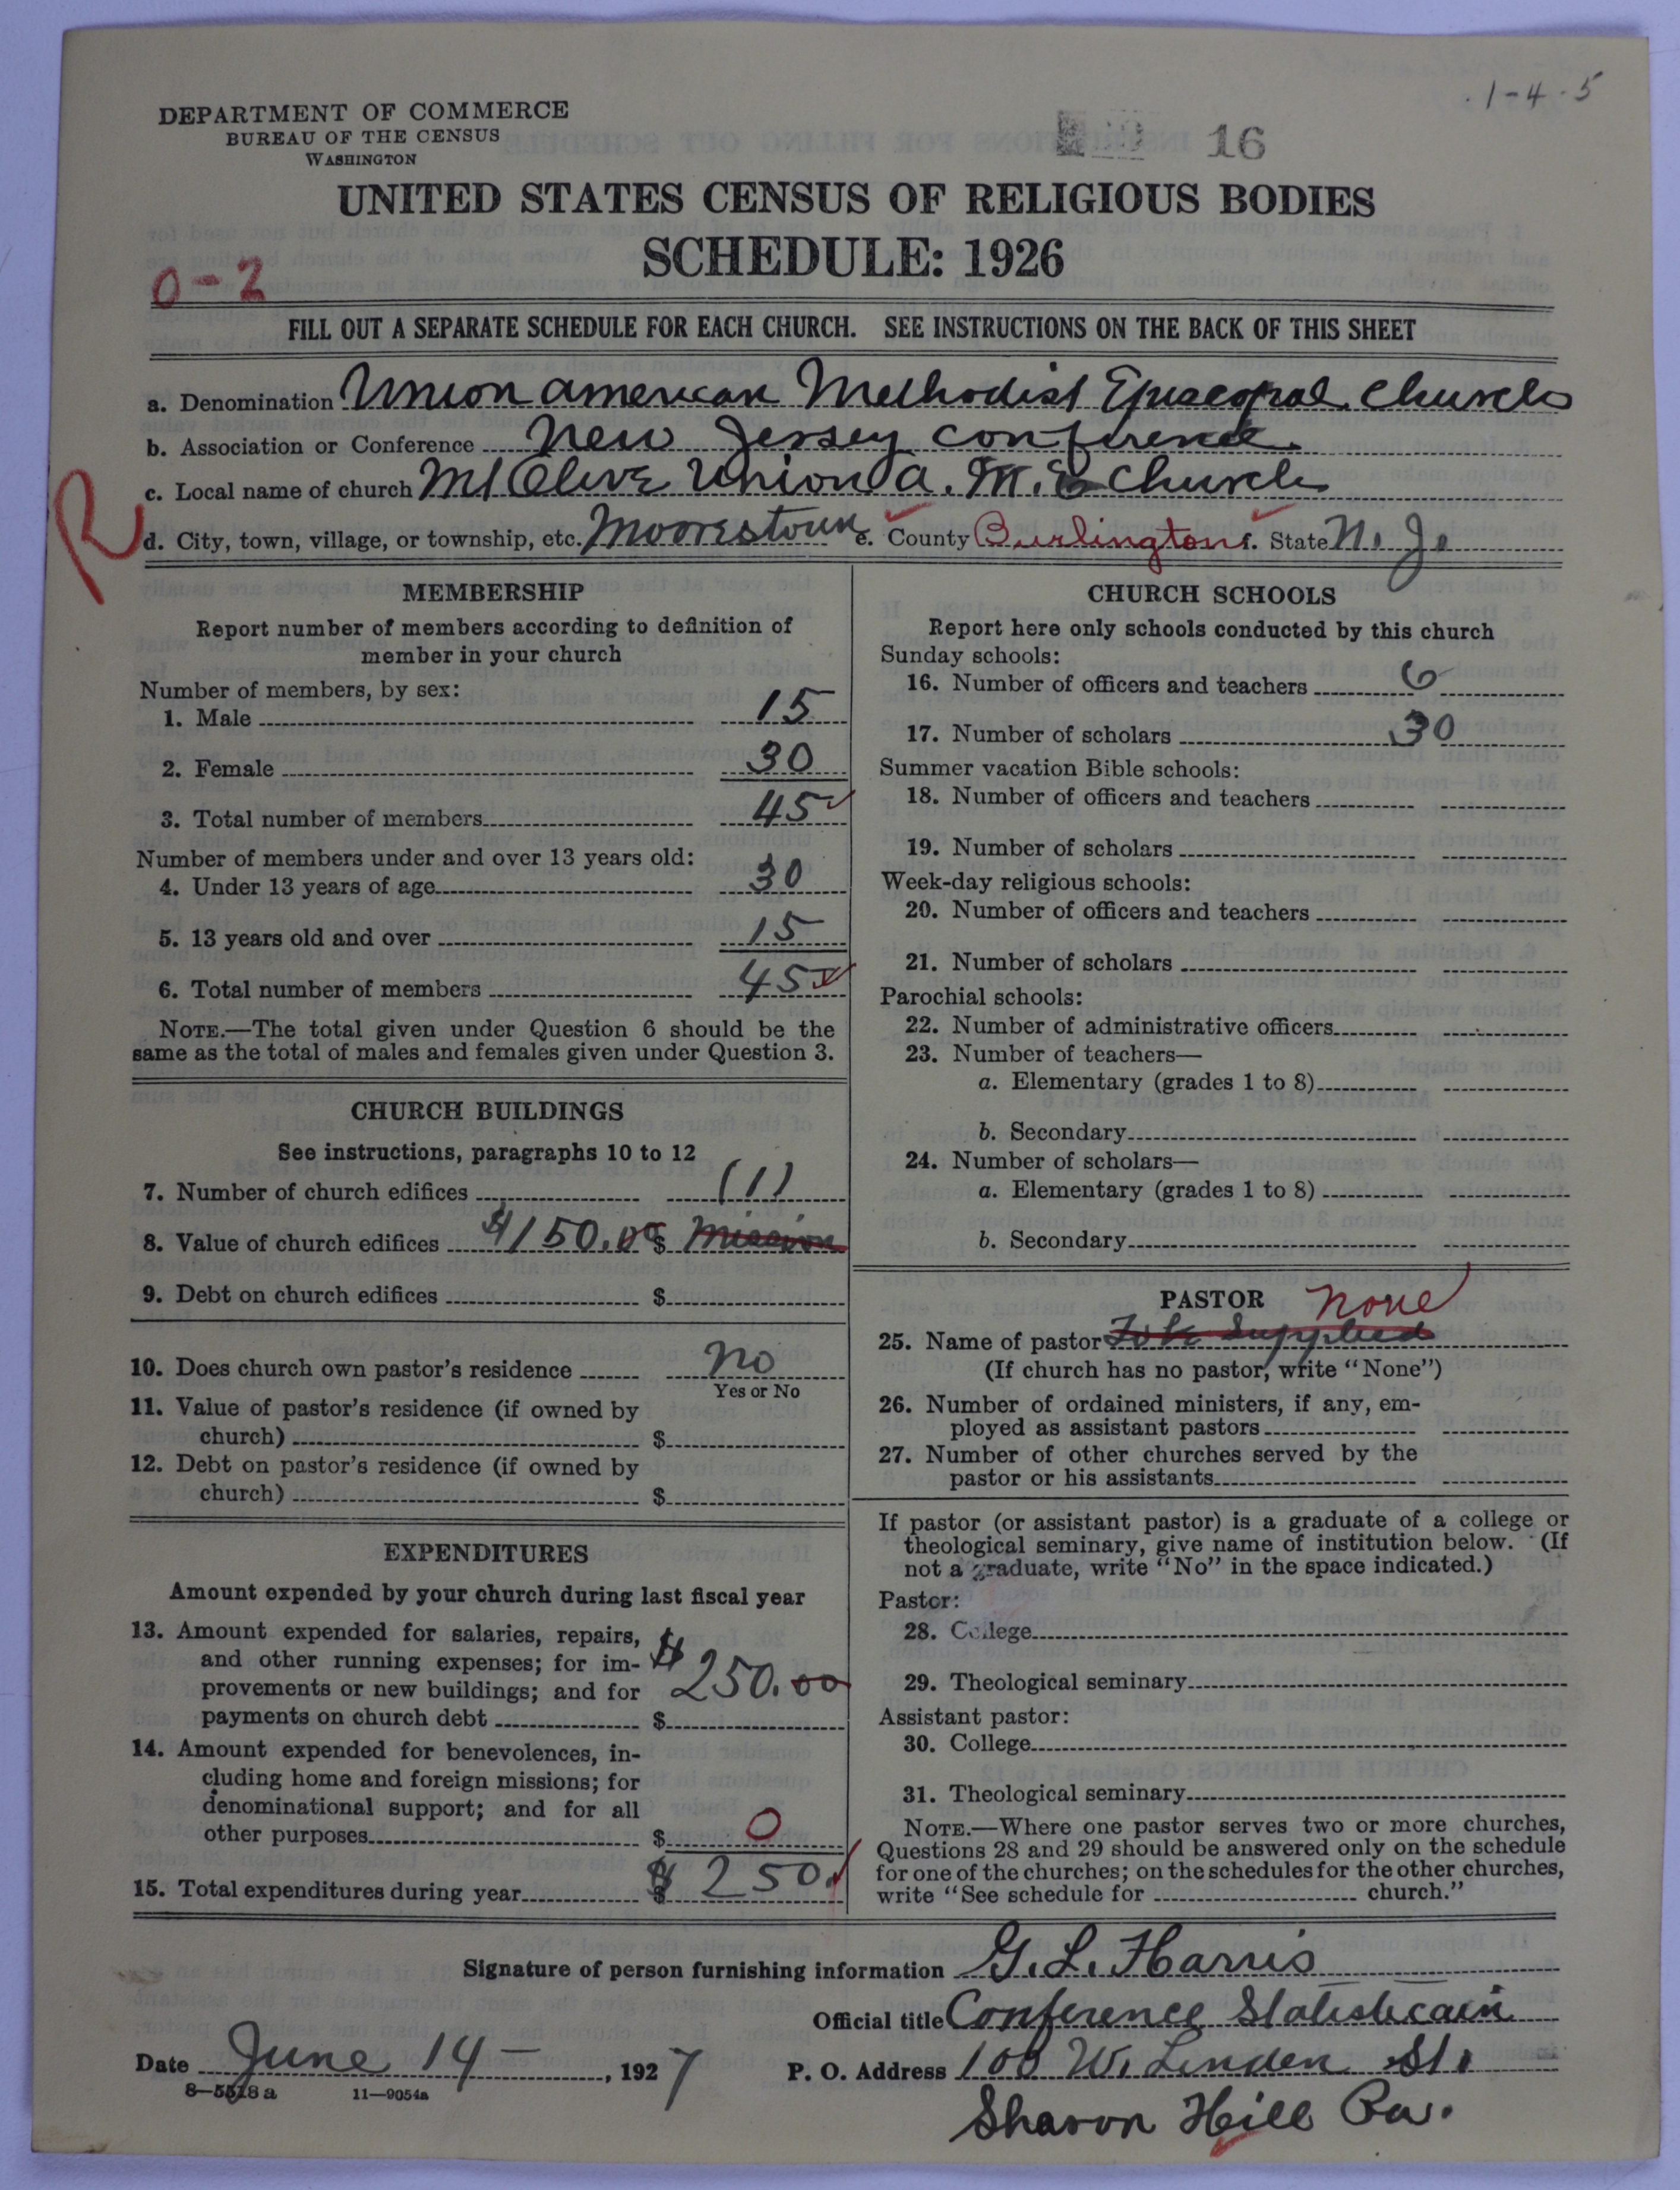 1-4-5
DEPARTMENT OF COMMERCE
BUREAU OF THE CENSUS
WASHINGTON
16
UNITED STATES CENSUS OF RELIGIOUS BODIES
SCHEDULE: 1926
0-2
FILL OUT A SEPARATE SCHEDULE FOR EACH CHURCH. SEE INSTRUCTIONS ON THE BACK OF THIS SHEET
a. Denomination Union American Methodist Episcopal Church
b. Association or Conference New Jersey Conference
c. Local name of church Mt Olive Union A. M. E Church
R
d. City, town, village, or township, etc. Moorestown e. County Burlington f. State N. J.
MEMBERSHIP
Report number of members according to definition of
member in your church
Number of members, by sex:
1. Male 15
2. Female 30
3. Total number of members 45
Number of members under and over 13 years old:
4. Under 13 years of age 30
5. 13 years old and over 15
6. Total number of members 45
NOTE.—The total given under Question 6 should be the
same as the total of males and females given under Question 3.
CHURCH BUILDINGS
See instructions, paragraphs 10 to 12
7. Number of church edifices (1)
8. Value of church edifices $150.00 $ Mission
9. Debt on church edifices $
10. Does church own pastor's residence No
Yes or No
11. Value of pastor's residence (if owned by
church) $
12. Debt on pastor's residence (if owned by
church) $
EXPENDITURES
Amount expended by your church during last fiscal year
13. Amount expended for salaries, repairs,
and other running expenses; for im-
provements or new buildings; and for
payments on church debt $ $250.00
14. Amount expended for benevolences, in-
cluding home and foreign missions; for
denominational support; and for all
other purposes $ 0
15. Total expenditures during year $ $250.
CHURCH SCHOOLS
Report here only schools conducted by this church
Sunday schools:
16. Number of officers and teachers 6
17. Number of scholars 30
Summer vacation Bible schools:
18. Number of officers and teachers
19. Number of scholars
Week-day religious schools:
20. Number of officers and teachers
21. Number of scholars
Parochial schools:
22. Number of administrative officers
23. Number of teachers—
a. Elementary (grades 1 to 8)
b. Secondary
24. Number of scholars—
a. Elementary (grades 1 to 8)
b. Secondary
PASTOR None
25. Name of pastor To be Supplied
(If church has no pastor, write "None")
26. Number of ordained ministers, if any, em-
ployed as assistant pastors
27. Number of other churches served by the
pastor or his assistants
If pastor (or assistant pastor) is a graduate of a college or
theological seminary, give name of institution below. (If
not a graduate, write "No" in the space indicated.)
Pastor:
28. College
29. Theological seminary
Assistant pastor:
30. College
31. Theological seminary
NOTE.—Where one pastor serves two or more churches,
Questions 28 and 29 should be answered only on the schedule
for one of the churches; on the schedules for the other churches,
write "See schedule for church."
Signature of person furnishing information G. L. Harris
Official title Conference Statisticain
Date June 14 - , 1927 P. O. Address 100 W. Linden St.
8—5518a 11—9054a
Sharon Hill Pa.